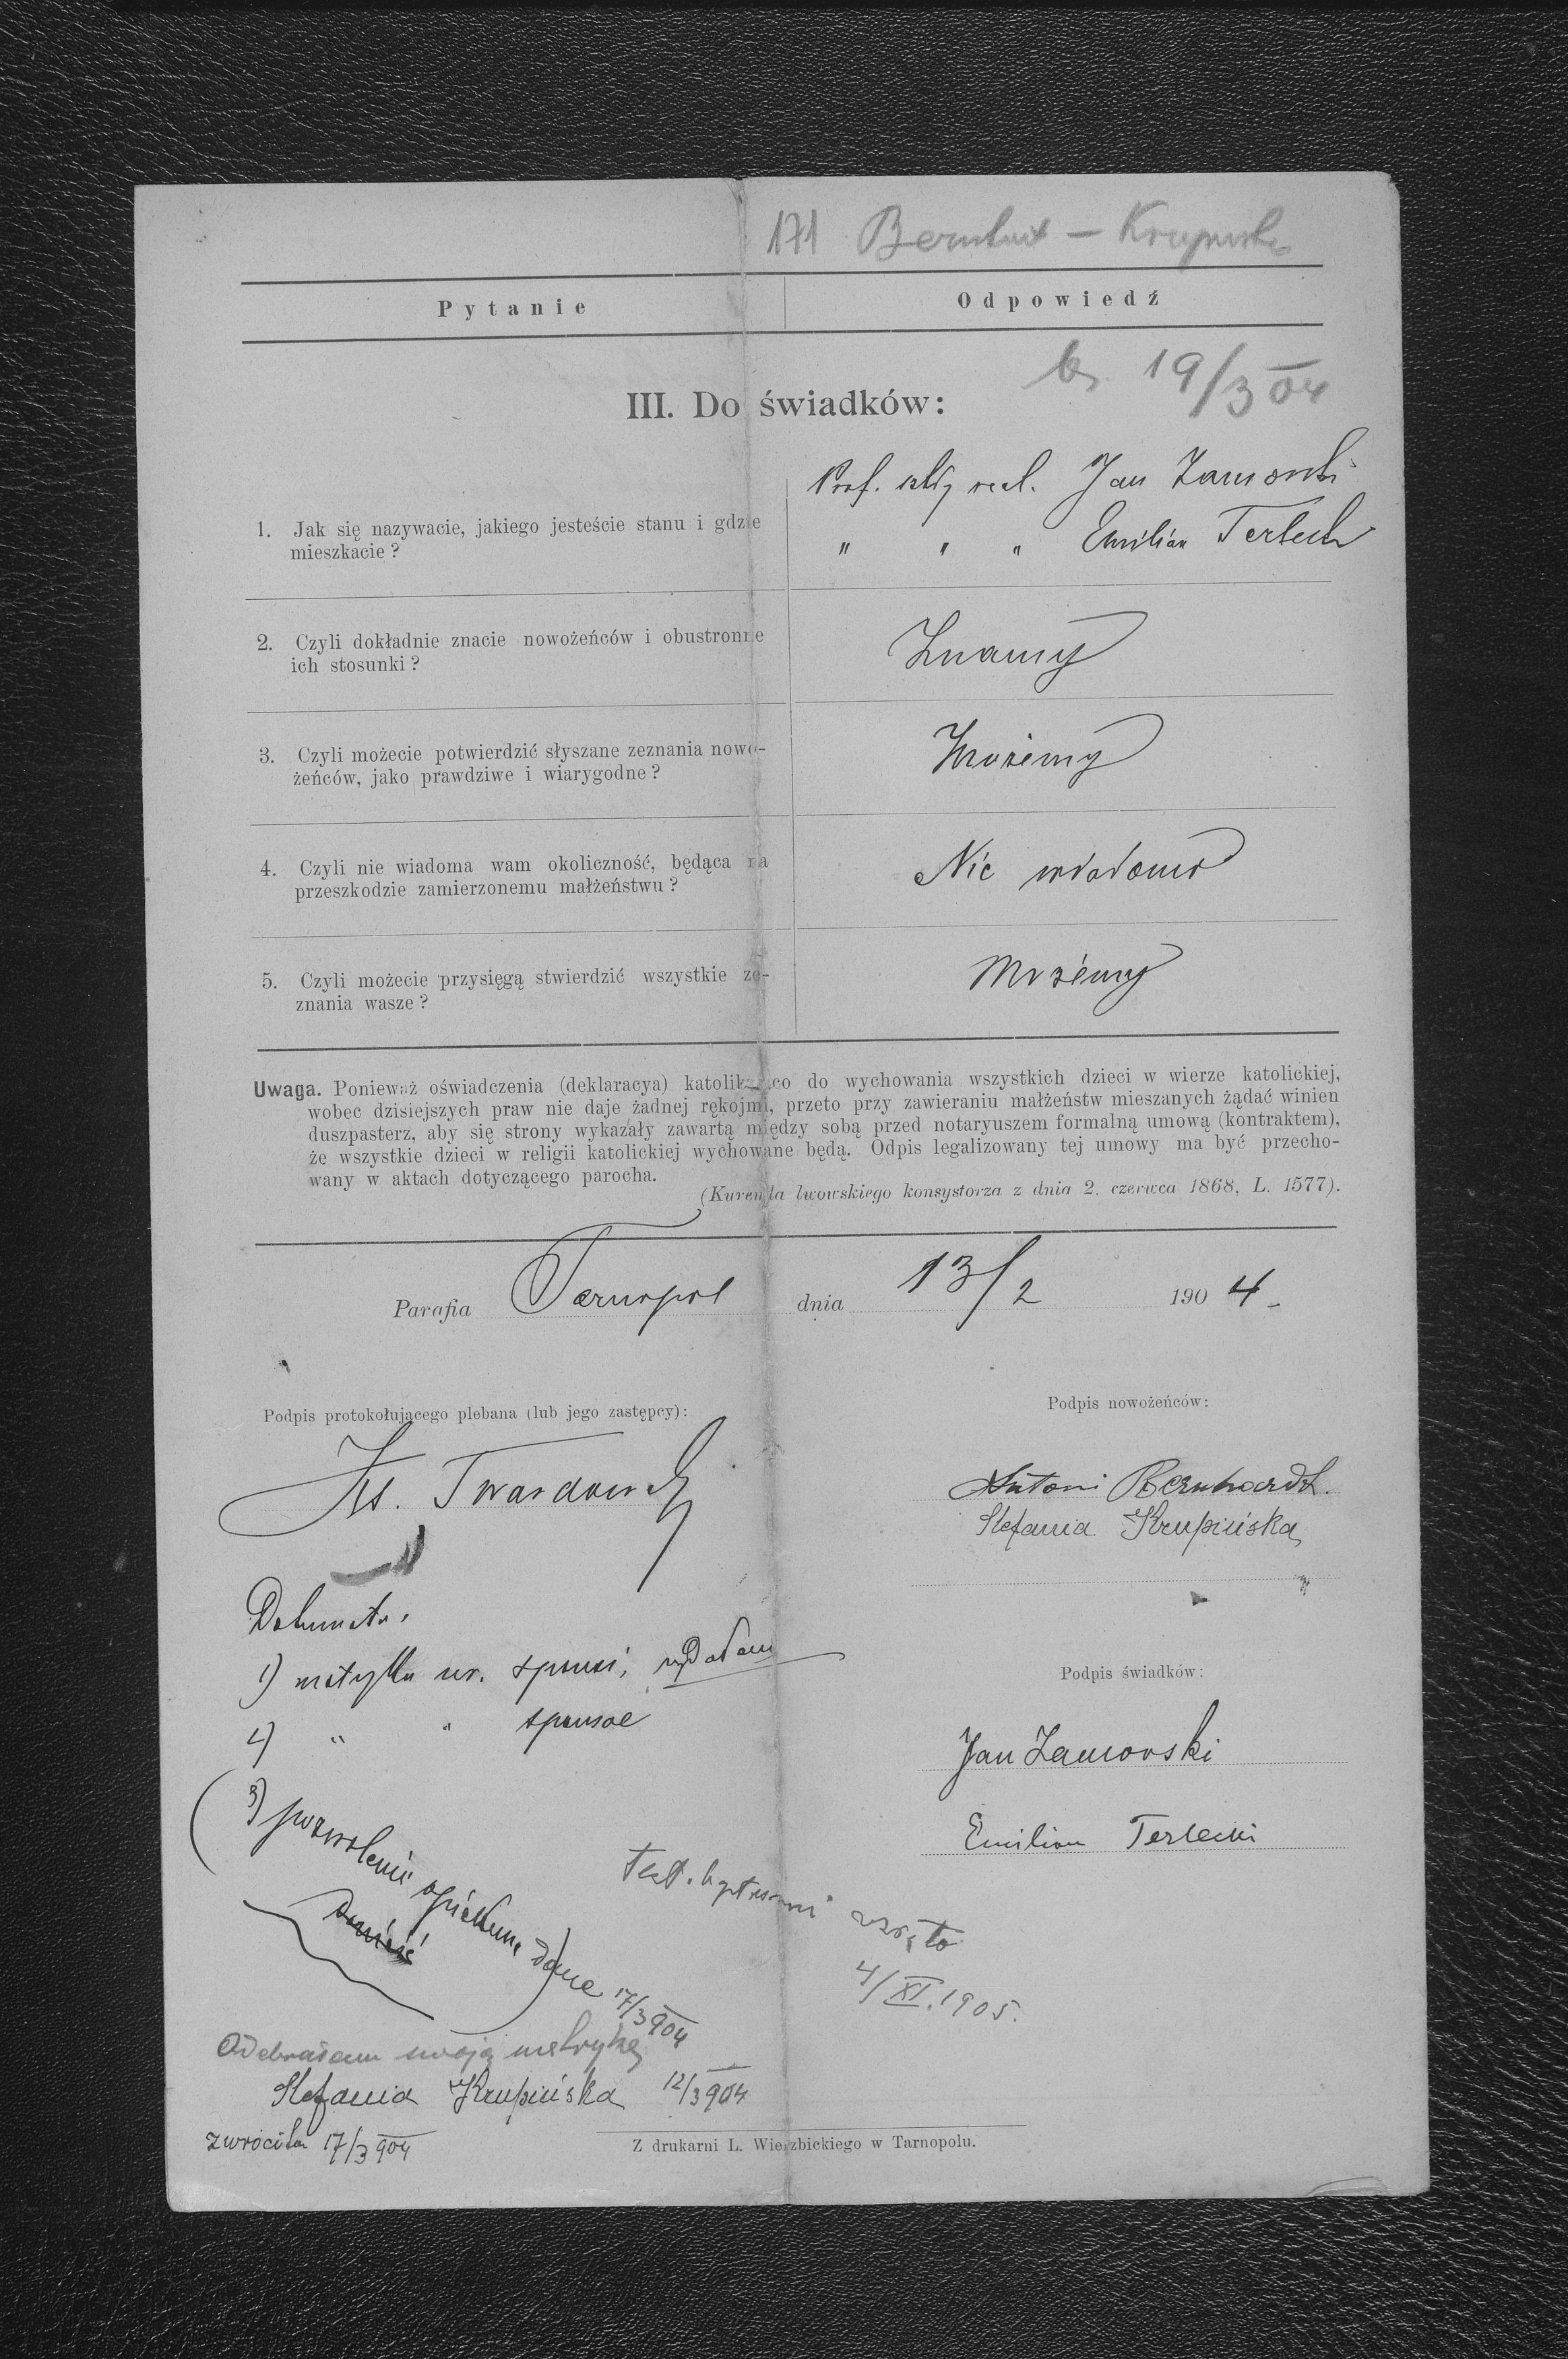 171 Bernhardt — Krupińska
Pytanie Odpowiedź
19/3 04
III. Do świadków:
Prof. szkły real. Jan Zamorski
1. Jak się nazywacie, jakiego jesteście stanu i gdzie
mieszkacie?
" " " Emilian Terlecki
2. Czyli dokładnie znacie nowożeńców i obustronne
ich stosunki?
Znamy
3. Czyli możecie potwierdzić słyszane zeznania nowo-
żeńców, jako prawdziwe i wiarygodne?
Możemy
4. Czyli nie wiadoma wam okoliczność, będąca na
przeszkodzie zamierzonemu małżeństwu?
Nic wiadomo
5. Czyli możecie przysięgą stwierdzić wszystkie ze-
znania wasze?
Możemy
Uwaga. Ponieważ oświadczenia (deklaracya) katolika co do wychowania wszystkich dzieci w wierze katolickiej,
wobec dzisiejszych praw nie daje żadnej rękojmi, przeto przy zawieraniu małżeństw mieszanych żądać winien
duszpasterz, aby się strony wykazały zawartą między sobą przed notaryuszem formalną umową (kontraktem),
że wszystkie dzieci w religii katolickiej wychowane będą. Odpis legalizowany tej umowy ma być przecho-
wany w aktach dotyczącego parocha.
(Kurenda lwowskiego konsystorza z dnia 2. czerwca 1868, L. 1577).
Parafia Tarnopol dnia 13/2 1904
Podpis protokołującego plebana (lub jego zastępcy):
Ks. Twardowski
Podpis nowożeńców:
Antoni Bernhardt.
Stefania Krupińska
Dokumenta:
1) metryka ur. sponsi,
2) " " sponsae
3) pozwolenie opiekuna dane 17/3 904
donieść
Podpis świadków:
Jan Zamorski
Emilian Terlecki
Test. baptismi wzięto
4/XI. 1905.
Odebrałam swoją metrykę
Stefania Krupińska 12/3 904
zwróciła 17/3 904
Z drukarni L. Wierzbickiego w Tarnopolu.